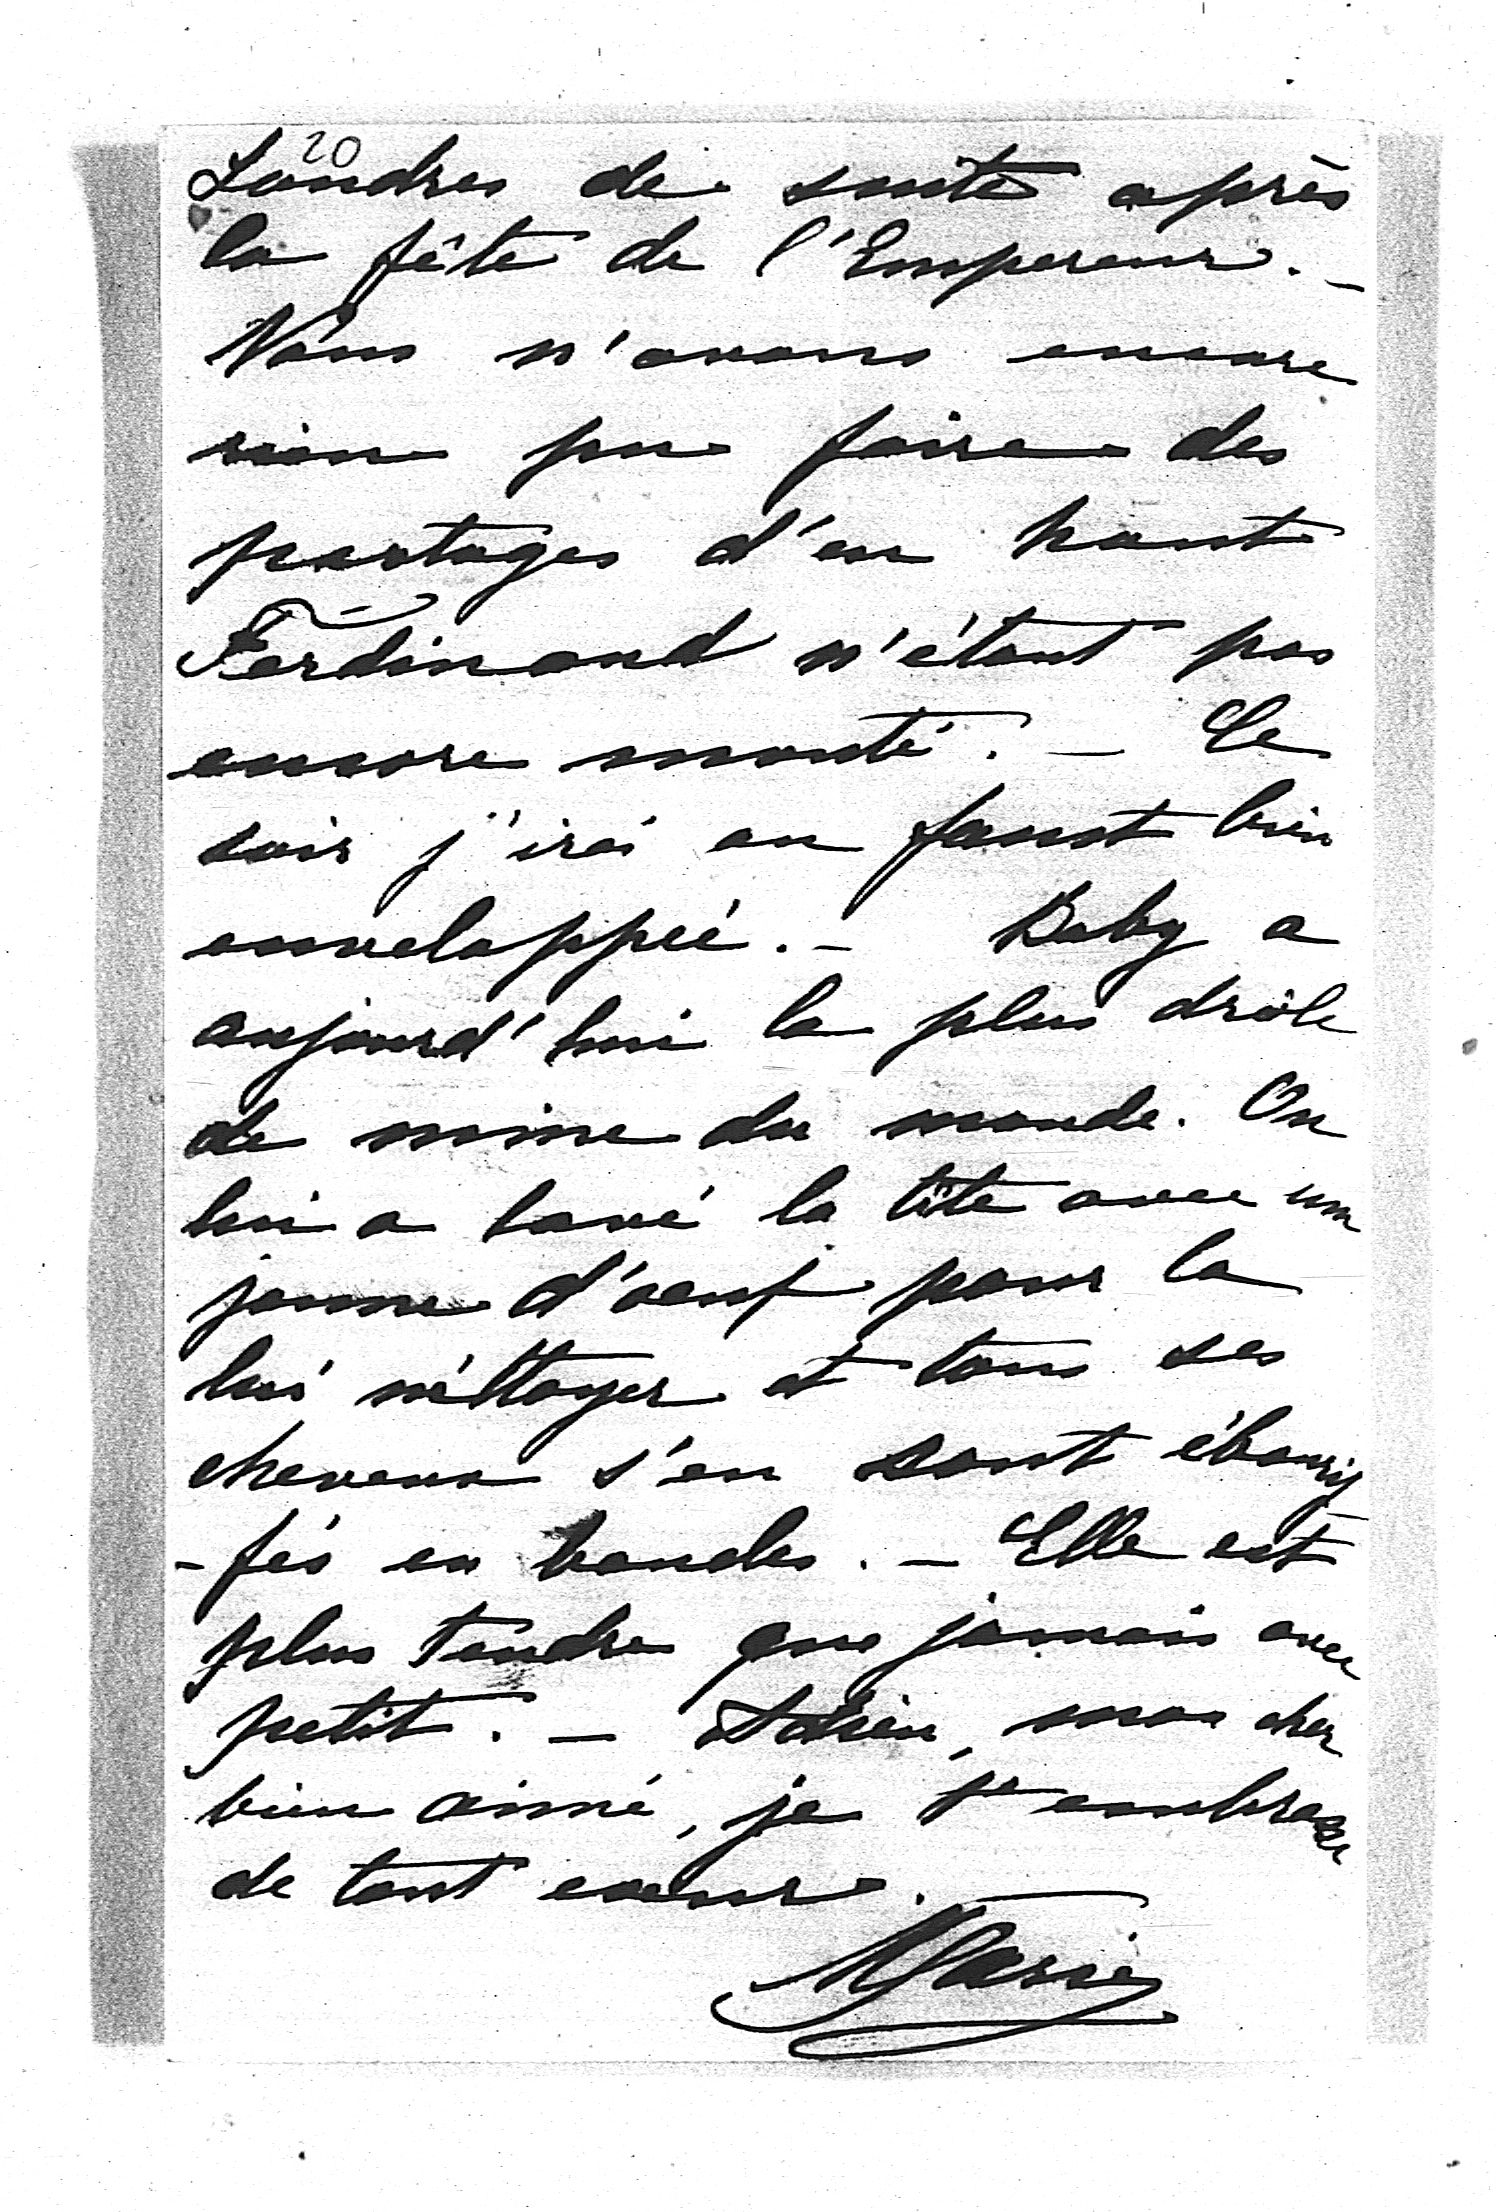 20
Londres de suite après
la fête de l'Empereur. –
Nous n'avons encore
rien pu faire des
partages d'en haut
Ferdinand n'étant pas
encore monté. – Ce
soir j'irai au faust bien
enveloppée. – Baby a
aujourd'hui la plus drôle
de mine du monde. On
lui a lavé la tête avec un
jaune d'oeuf pour la
lui néttoyer et tous ses
cheveux s'en sont ébourif
-fés en boucles. – Elle est
plus tendre que jamais avec
petit. – Adieu, mon cher
bien aimé, je t'embrasse
de tout coeur.
Marie